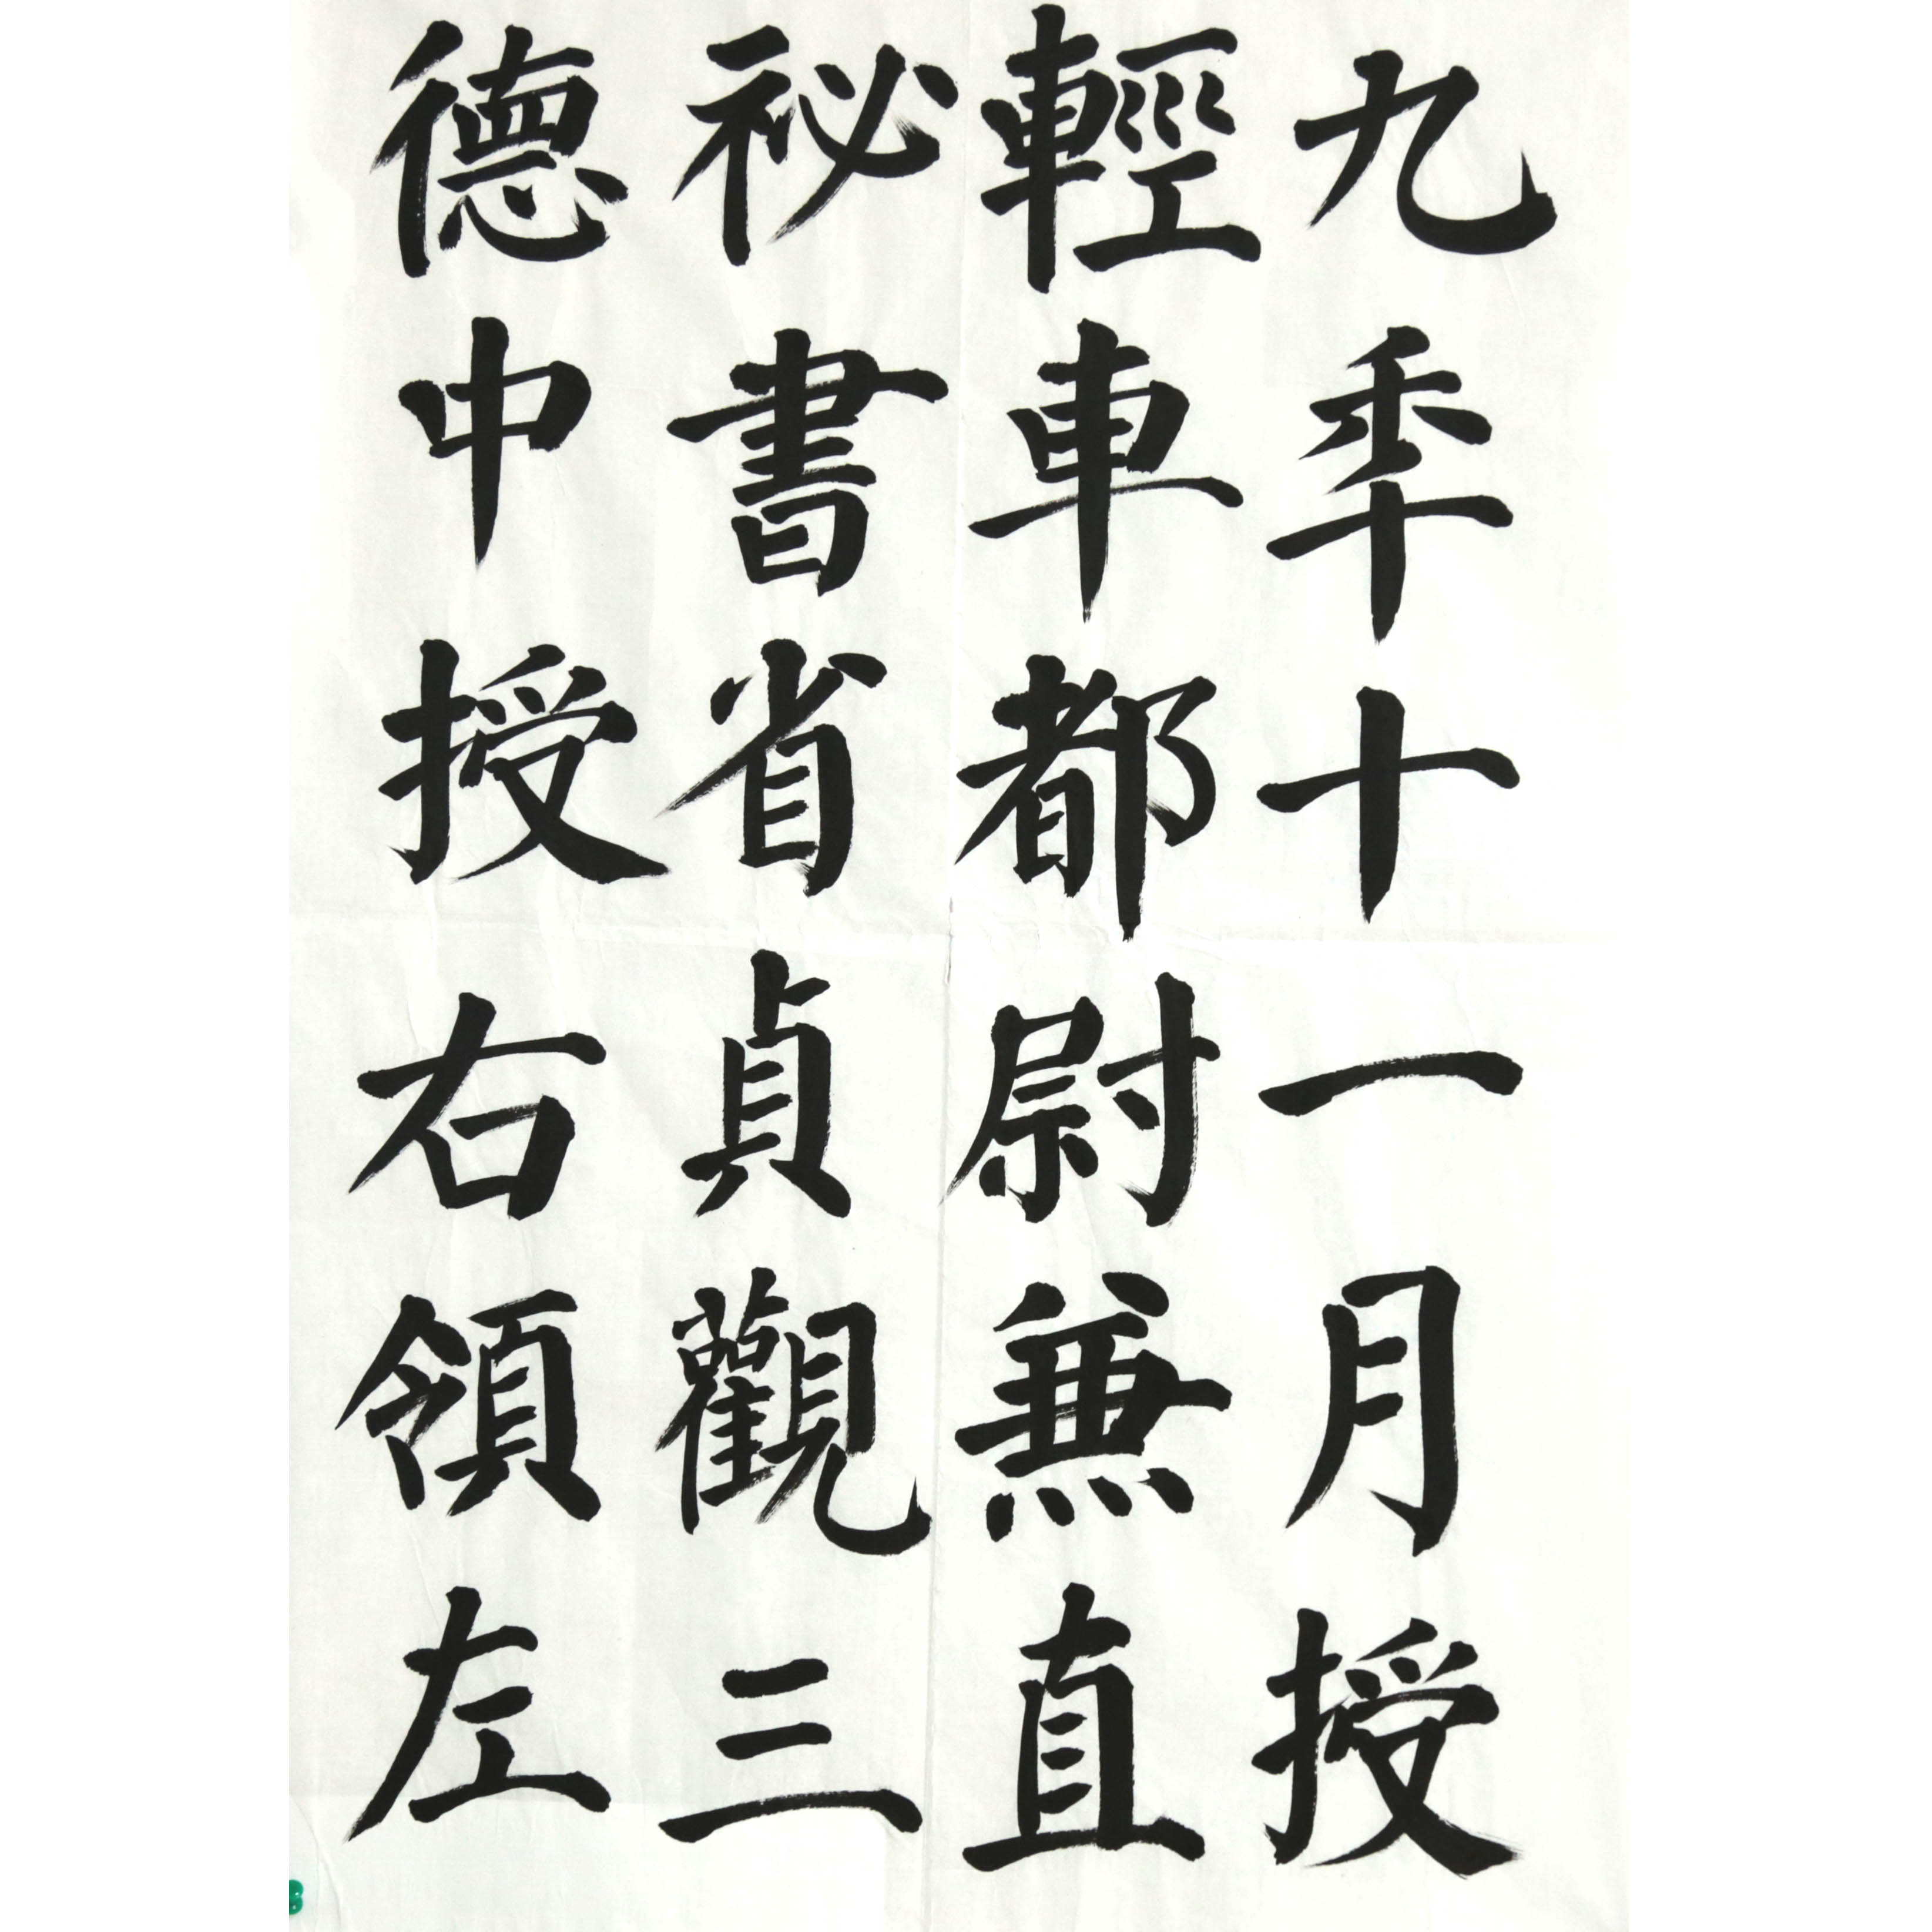 九秊十一月授
輕車都尉兼直
祕書省貞觀三
德中授右領左